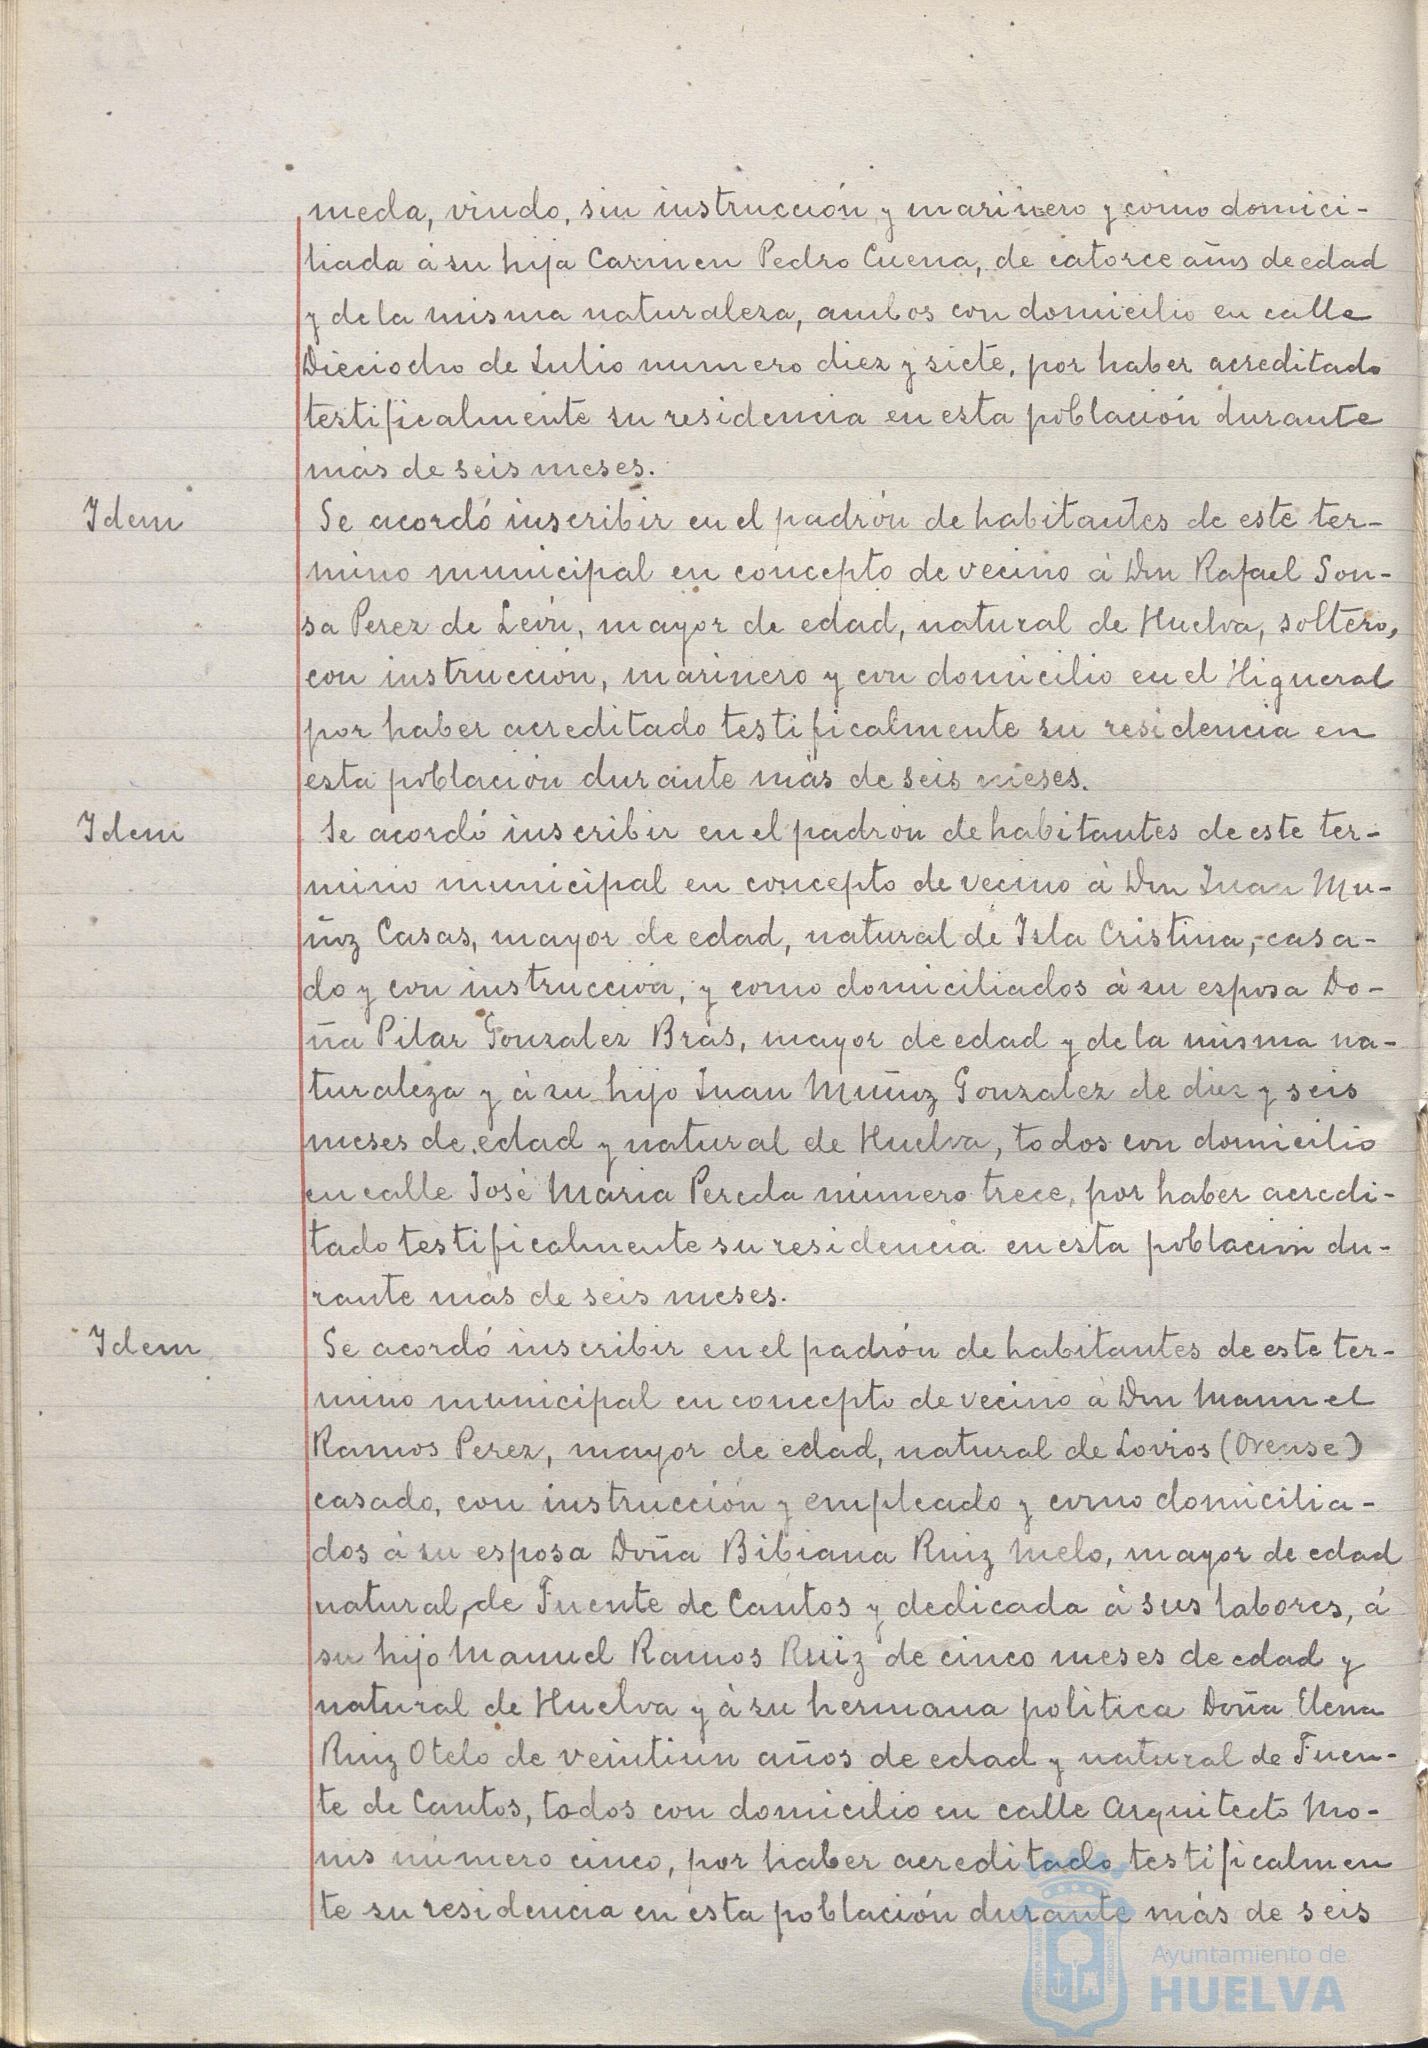 meda, viudo, sin instrucción y marinero y como domici-
liada á su hija Carmen Pedro Cuena, de catorce años de edad
y de la misma naturaleza, ambos con domicilio en calle
Dieciocho de Julio numero diez y siete, por haber acreditado
testificalmente su residencia en esta población durante
más de seis meses.
Idem
Se acordó inscribir en el padrón de habitantes de este ter-
mino municipal en concepto de vecino á Don Rafael Sou-
sa Perez de León, mayor de edad, natural de Huelva, soltero,
con instrucción, marinero y con domicilio en el Higueral
por haber acreditado testificalmente su residencia en
esta población durante más de seis meses.
Idem
Se acordó inscribir en el padrón de habitantes de este ter-
mino municipal en concepto de vecino á Don Juan Mu-
ñoz Casas, mayor de edad, natural de Isla Cristina, casa-
do y con instrucción, y como domiciliados á su esposa Do-
ña Pilar Gonzalez Brás, mayor de edad y de la misma na-
turaleza y á su hijo Juan Muñoz Gonzalez de diez y seis
meses de edad y natural de Huelva, todos con domicilio
en calle José Maria Pereda número trece, por haber acredi-
tado testificalmente su residencia en esta población du-
rante más de seis meses.
Idem
Se acordó inscribir en el padrón de habitantes de este ter-
mino municipal en concepto de vecino á Don Manuel
Ramos Perez, mayor de edad, natural de Lovios (Orense)
casado, con instrucción y empleado y como domicilia-
dos á su esposa Doña Bibiana Ruiz Melo, mayor de edad
natural, de Fuente de Cantos y dedicada á sus labores, á
su hijo Manuel Ramos Ruiz de cinco meses de edad y
natural de Huelva y á su hermana politica Doña Elena
Ruiz Otelo de veintiun años de edad y natural de Fuen-
te de Cantos, todos con domicilio en calle Arquitecto Mo-
nis número cinco, por haber acreditado testificalmen
te su residencia en esta población durante más de seis
Ayuntamiento de
HUELVA